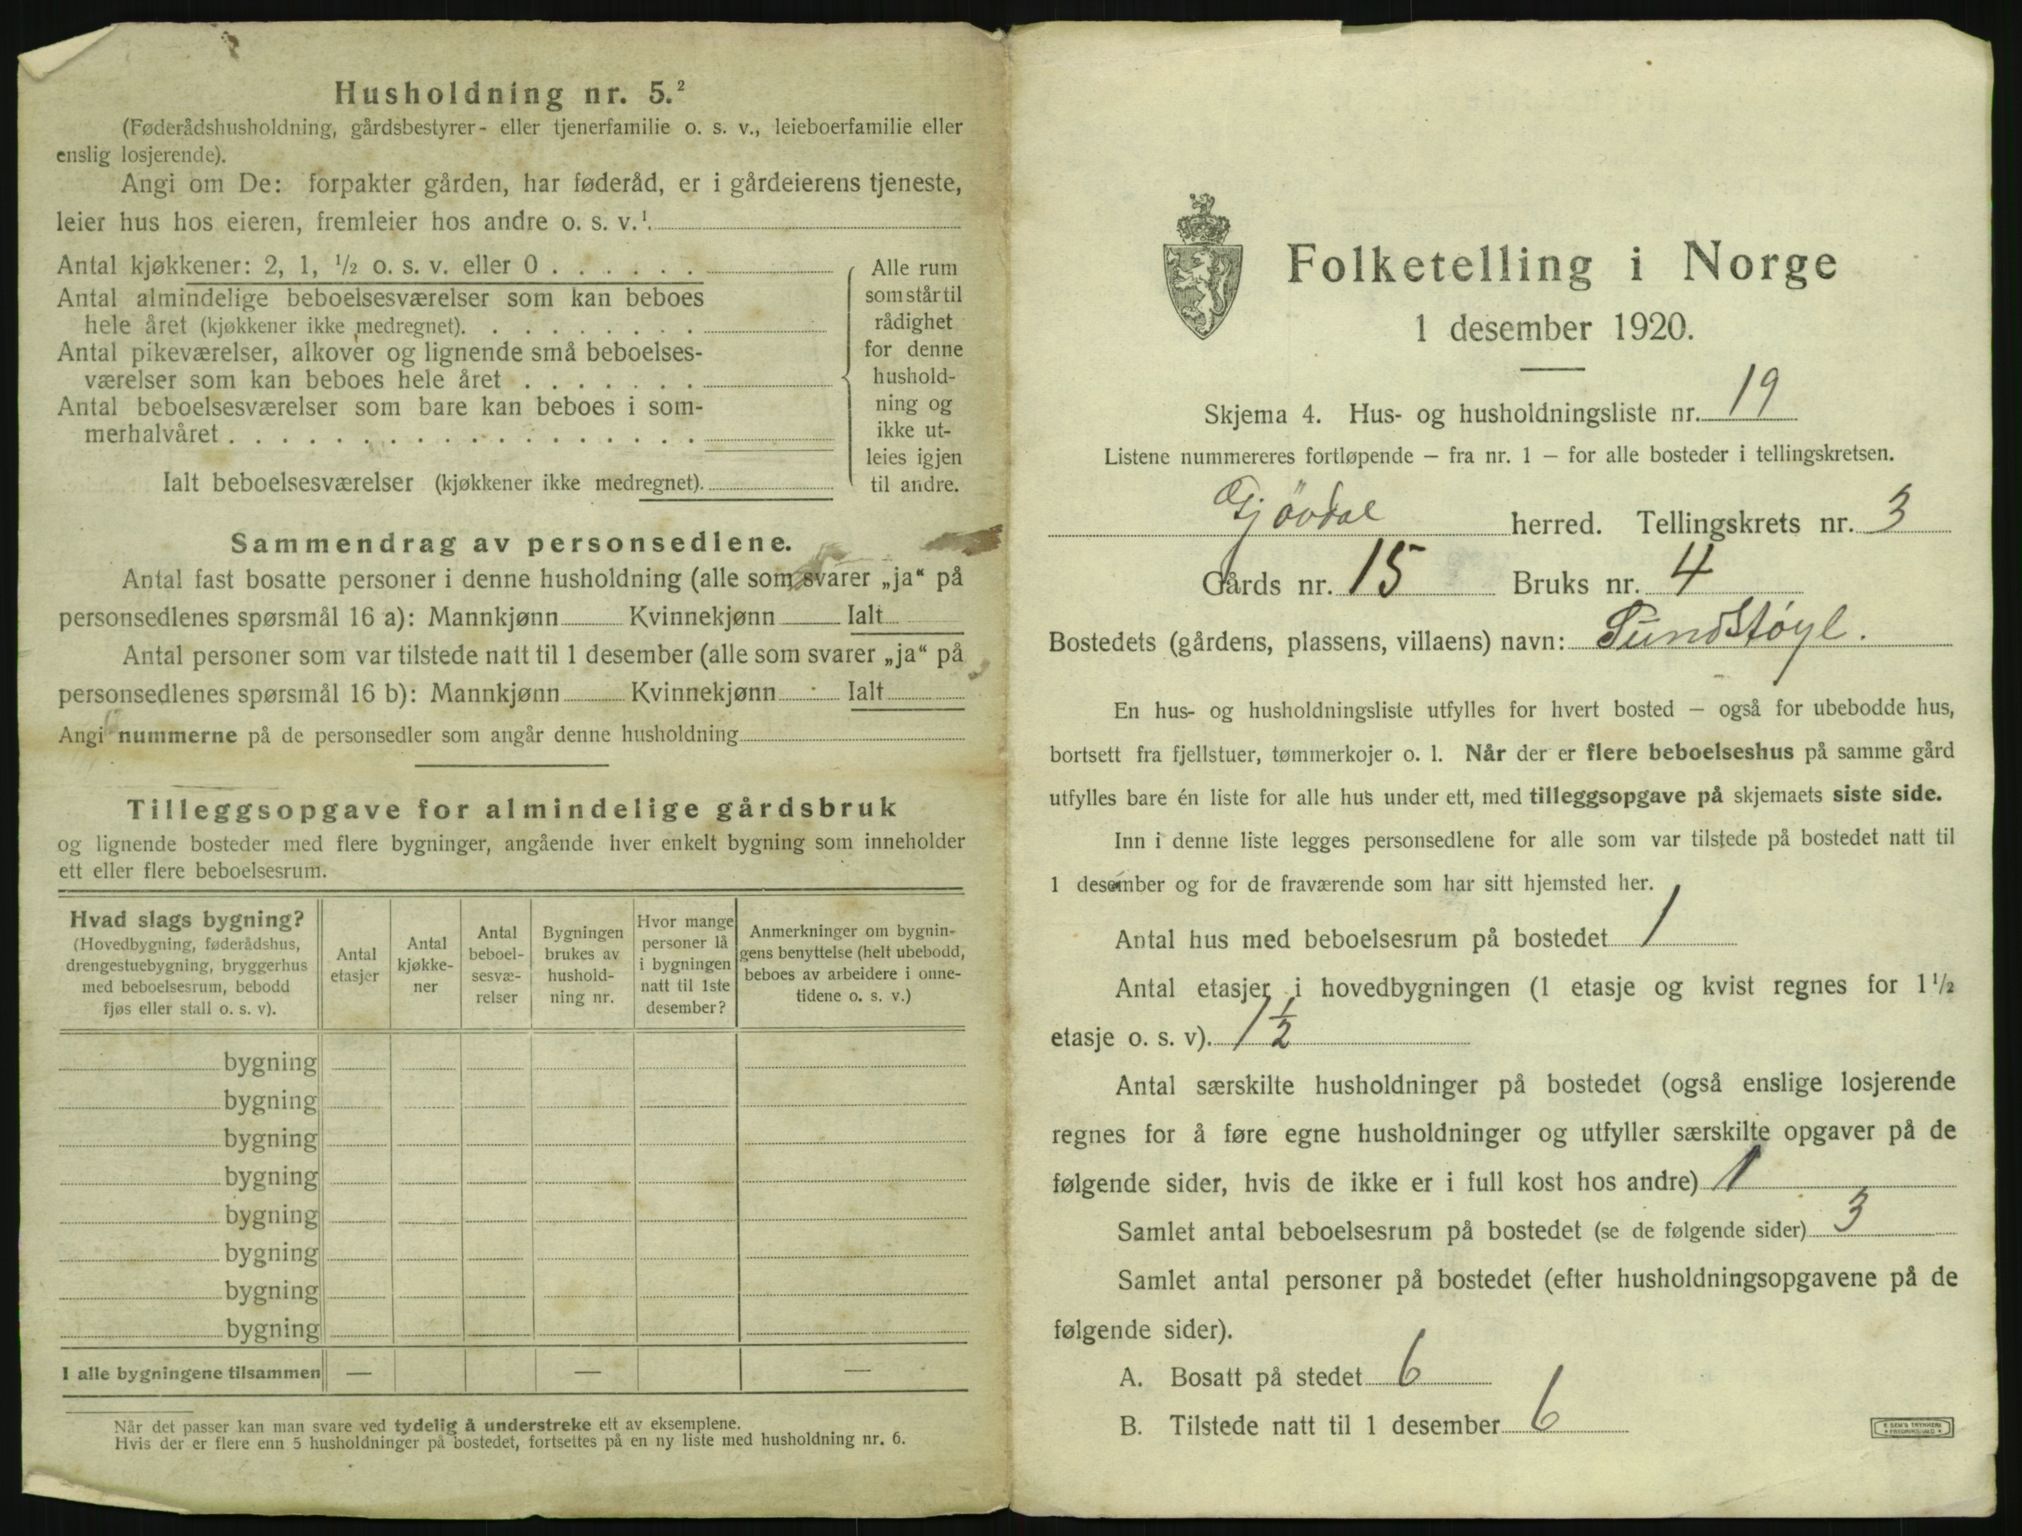 Husholdning nr. 5.²
(Føderådshusholdning, gårdsbestyrer- eller tjenerfamilie o. s. v., leieboerfamilie eller
enslig losjerende).
Angi om De: forpakter gården, har føderåd, er i gårdeierens tjeneste,
leier hus hos eieren, fremleier hos andre o. s. v.¹
Antal kjøkkener: 2, 1, ½ o. s. v. eller 0 . . . . . .
Antal almindelige beboelsesværelser som kan beboes
hele året (kjøkkener ikke medregnet). . . . . . . . .
Antal pikeværelser, alkover og lignende små beboelses-
værelser som kan beboes hele året . . . . . . .
Antal beboelsesværelser som bare kan beboes i som-
merhalvåret . . . . . . . . . . . . . . . . . .
Ialt beboelsesværelser (kjøkkener ikke medregnet).
Alle rum
som står til
rådighet
for denne
hushold-
ning og
ikke ut-
leies igjen
til andre.
Sammendrag av personsedlene.
Antal fast bosatte personer i denne husholdning (alle som svarer „ja“ på
personsedlenes spørsmål 16 a): Mannkjønn Kvinnekjønn Ialt
Antal personer som var tilstede natt til 1 desember (alle som svarer „ja“ på
personsedlenes spørsmål 16 b): Mannkjønn Kvinnekjønn Ialt
Angi nummerne på de personsedler som angår denne husholdning
Tilleggsopgave for almindelige gårdsbruk
og lignende bosteder med flere bygninger, angående hver enkelt bygning som inneholder
ett eller flere beboelsesrum.
Hvad slags bygning?
(Hovedbygning, føderådshus,
drengestuebygning, bryggerhus
med beboelsesrum, bebodd
fjøs eller stall o. s. v).
Antal
etasjer
Antal
kjøkke-
ner
Antal
beboel-
sesvæ-
relser
Bygningen
brukes av
hushold-
ning nr.
Hvor mange
personer lå
i bygningen
natt til 1ste
desember?
Anmerkninger om bygnin-
gens benyttelse (helt ubebodd,
beboes av arbeidere i onne-
tidene o. s. v.)
bygning
bygning
bygning
bygning
bygning
bygning
bygning
bygning
I alle bygningene tilsammen — — —
Når det passer kan man svare ved tydelig å understreke ett av eksemplene.
Hvis der er flere enn 5 husholdninger på bostedet, fortsettes på en ny liste med husholdning nr. 6.
Folketelling i Norge
1 desember 1920.
Skjema 4. Hus- og husholdningsliste nr. 19
Listene nummereres fortløpende – fra nr. 1 – for alle bosteder i tellingskretsen.
Gjövdal herred. Tellingskrets nr. 3
Gårds nr. 15 Bruks nr. 4
Bostedets (gårdens, plassens, villaens) navn: Sundstøyl.
En hus- og husholdningsliste utfylles for hvert bosted – også for ubebodde hus,
bortsett fra fjellstuer, tømmerkojer o. l. Når der er flere beboelseshus på samme gård
utfylles bare én liste for alle hus under ett, med tilleggsopgave på skjemaets siste side.
Inn i denne liste legges personsedlene for alle som var tilstede på bostedet natt til
1 desember og for de fraværende som har sitt hjemsted her.
Antal hus med beboelsesrum på bostedet 1
Antal etasjer i hovedbygningen (1 etasje og kvist regnes for 1½
etasje o. s. v). 1½
Antal særskilte husholdninger på bostedet (også enslige losjerende
regnes for å føre egne husholdninger og utfyller særskilte opgaver på de
følgende sider, hvis de ikke er i full kost hos andre) 1
Samlet antal beboelsesrum på bostedet (se de følgende sider) 3
Samlet antal personer på bostedet (efter husholdningsopgavene på de
følgende sider).
A. Bosatt på stedet 6
B. Tilstede natt til 1 desember 6